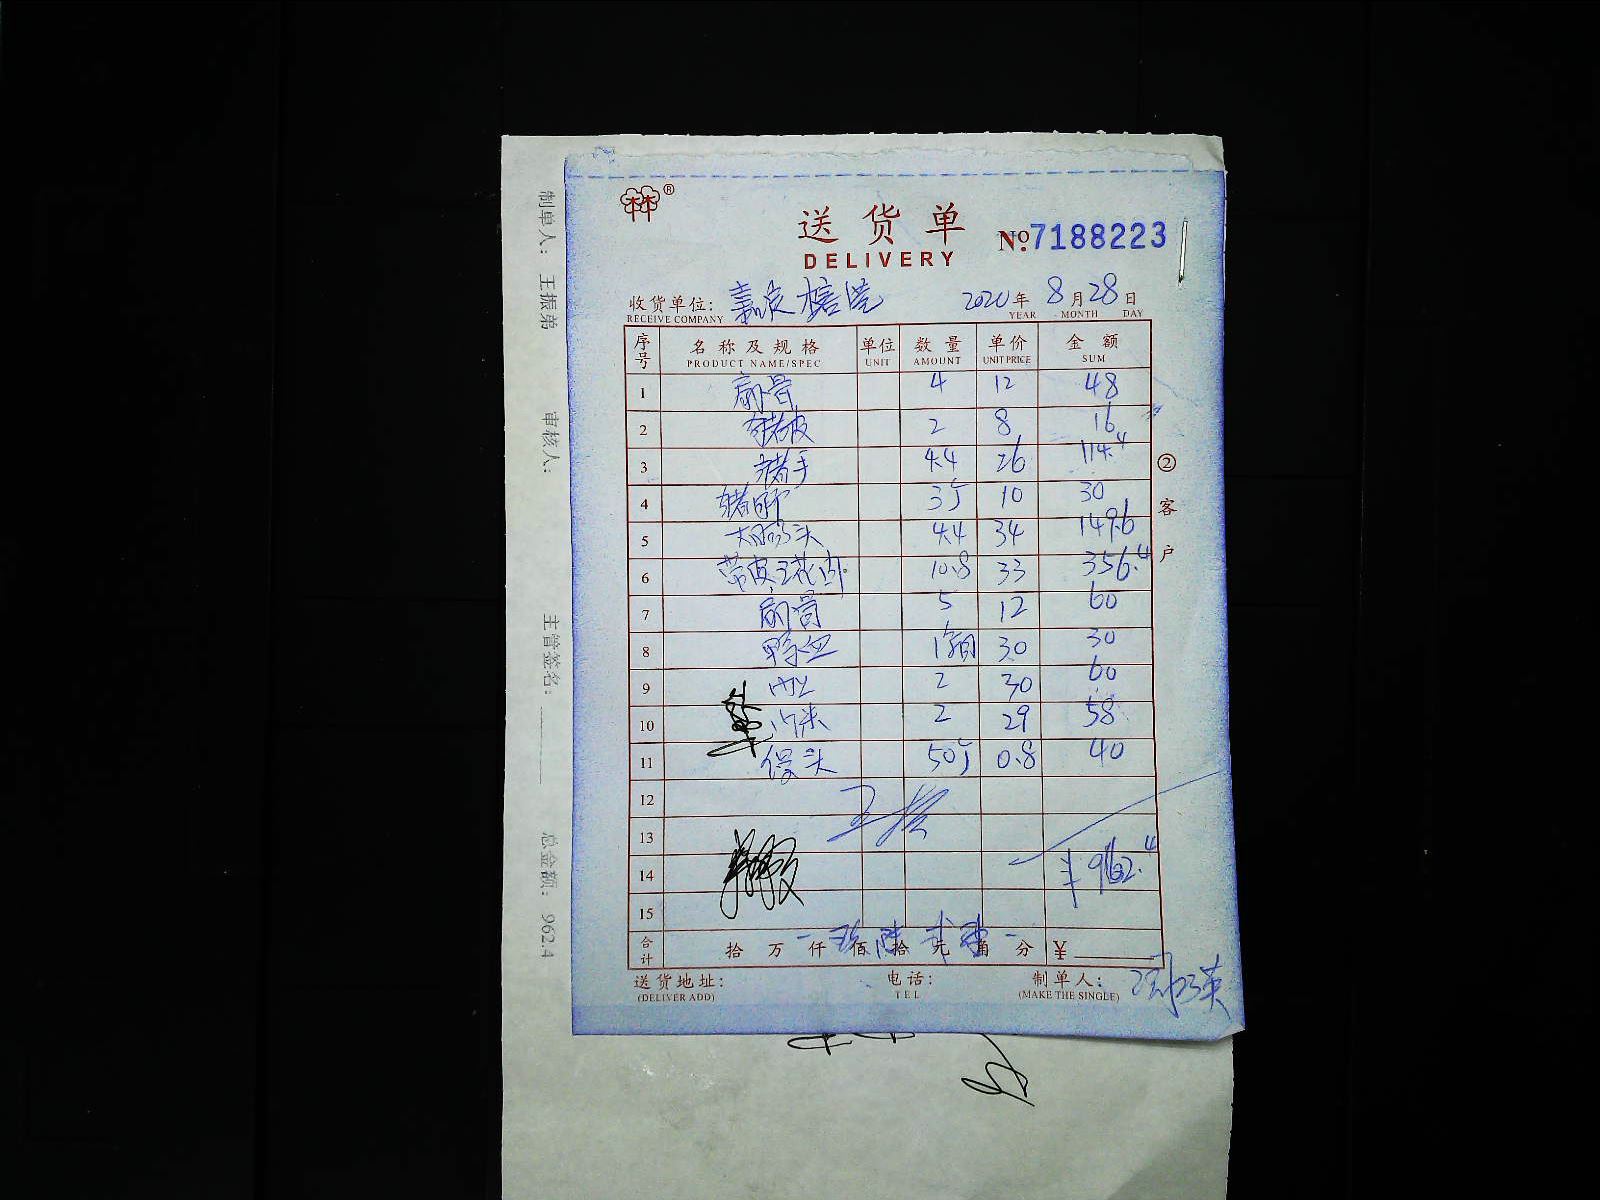 送货单
DELIVERY
№ 7188223
收货单位: 嘉定
2020年 8月28日
RECEIVE COMPANY YEAR MONTH DAY
序号 名称及规格 单位 数量 单价 金额
PRODUCT NAME/SPEC UNIT AMOUNT UNIT PRICE SUM
1 扇骨 4 12 48
2 猪皮 2 8 16
3 猪手 4.4 26 114.4
4 猪 3 10 30
5 大肠头 4.4 34 149.6
6 带皮五花肉 10.8 33 356.4
7 扇骨 5 12 60
8 鸭血 1箱 30 30
9 2 30 60
10 2 29 58
11 馒头 50 0.8 40
12
13
14 ¥962.4
15
合计 拾 万 仟 佰 拾 元 角 分 ¥
送货地址: 电话: 制单人:
(DELIVER ADD) TEL (MAKE THE SINGLE)
②客户
制单人: 王振弟 审核人: 主管签名: 总金额: 962.4